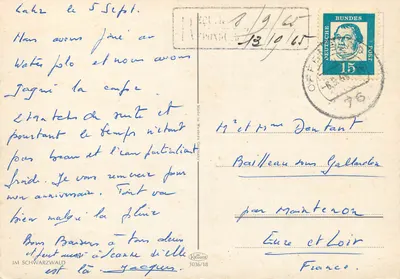 Lahr le 5 Sept.
Nous avons joué au
Water polo et nous avons
gagné la coupe
matchs de suite et
pourtant le temps n'était
pas beau et l'eau particulièrement
froide. Je vous remercie pour
mon anniversaire. Tout va
bien malgré la pluie
Bons Baisers à tous deux
et aussi à
est là Jacques.
IM SCHWARZWALD
8/9/65
13/9/65
DEUTSCHE BUNDESPOST
15
OFFEN
76
Mr et Mme Dentant
Bailleau sous Gallardon
par Maintenon
Eure et Loir
France.